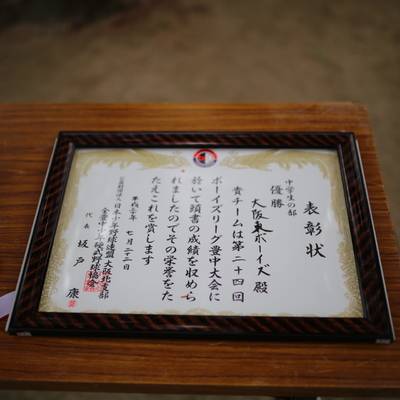 表彰状
中学生の部
優勝
大阪東ボーイズ殿
貴チームは第二十四回
ボーイズリーグ豊中大会に
於いて頭書の成績を収めら
れましたのでその栄誉をた
たえこれを賞します
七月二十二日
日本少年野球連盟 大阪北支部
代表 坂戸 康